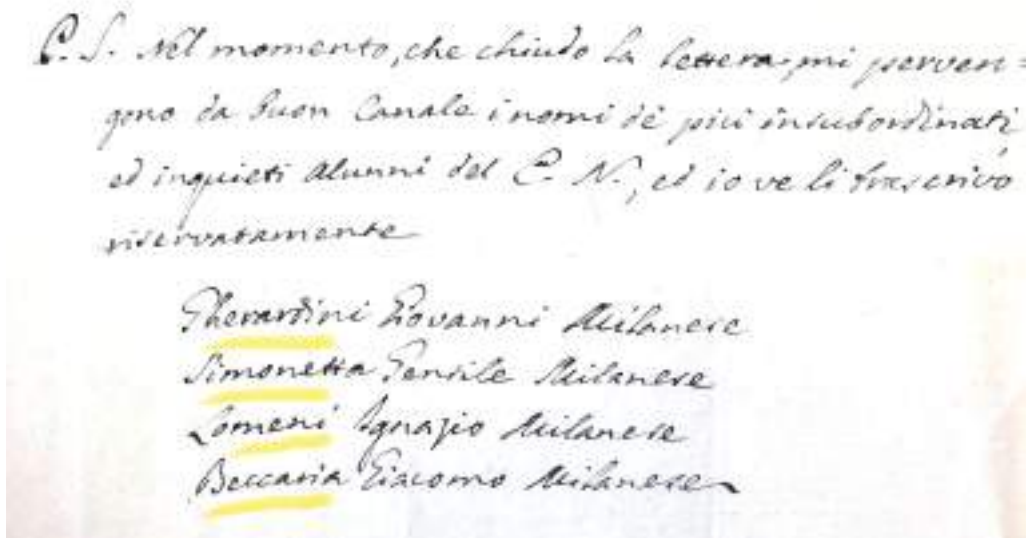 P. S. Nel momento, che chiudo la lettera, mi perven=
gono da buon Canale i nomi de' più insubordinati,
ed inquieti Alunni del C. N., ed io ve li trascrivo
riservatamente
Gherardini Giovanni Milanese
Simonetta Gentile Milanese
Lomeni Ignazio Milanese
Beccaria Giacomo Milanese